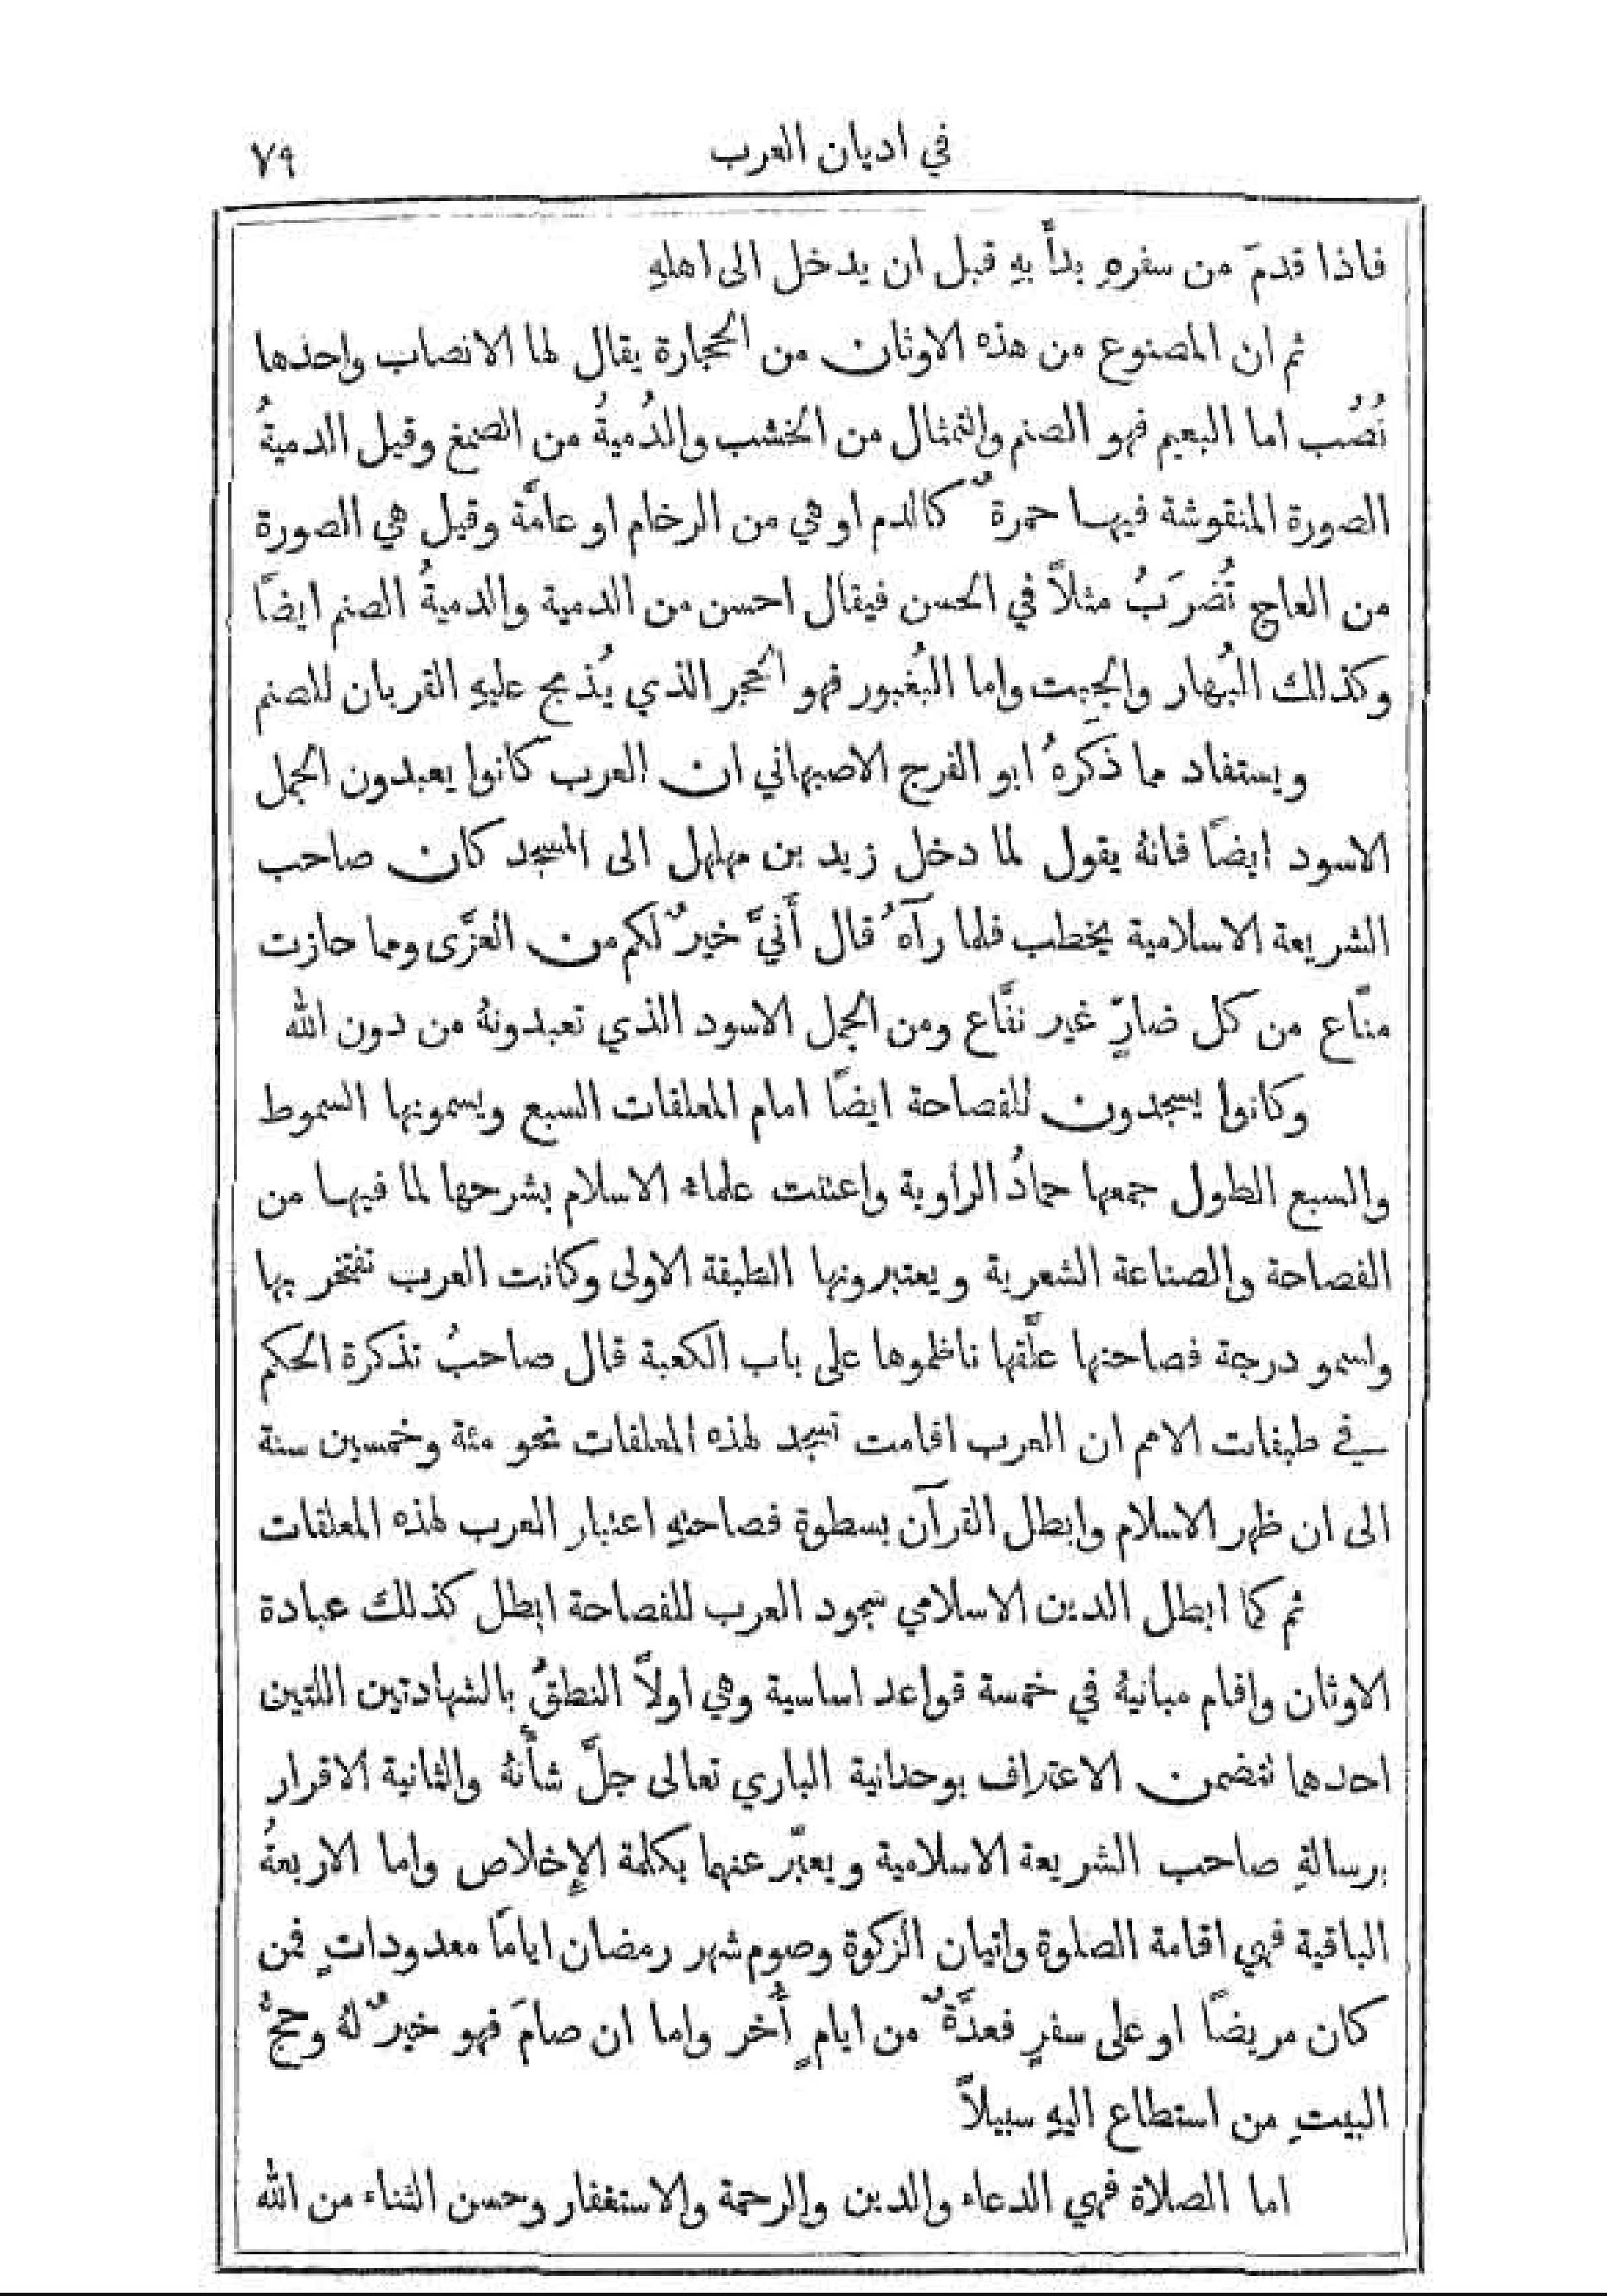 في اديان العرب
٧٩
فاذا قدمَ من سفرهِ بدأَ بهِ قبل ان يدخل الى اهلهِ
ثم ان المصنوع من هذه الاوثان من الحجارة يقال لها الانصاب واحدها
نُصُب اما البعيم فهو الصنم والتمثال من الخشب والدُميةُ من الصمغ وقيل الدميةُ
الصورة المنقوشة فيها حمرةٌ كالدم او هي من الرخام او عامَّة وقيل هي الصورة
من العاج تُضرَبُ مثلاً في الحسن فيقال احسن من الدمية والدميةُ الصنم ايضًا
وكذلك البُهار والجِبت واما البُغبور فهو الحجر الذي يُذبح عليهِ القربان للصنم
ويستفاد مما ذَكَرهُ ابو الفرج الاصبهاني ان العرب كانوا يعبدون الجمل
الاسود ايضًا فانهُ يقول لما دخل زيد بن مهلهل الى المسجد كان صاحب
الشريعة الاسلامية يخطب فلما رآهُ قال أَنيَّ خيرٌ لكم من العزَّى ومما حازت
منَّاع من كل ضارٍّ غير نفَّاع ومن الجمل الاسود الذي تعبدونهُ من دون الله
وكانوا يسجدون للفصاحة ايضًا امام المعلقات السبع ويسمونها السموط
والسبع الطول جمعها حمادُ الراوية واعتنت علماء الاسلام بشرحها لما فيها من
الفصاحة والصناعة الشعرية ويعتبرونها الطبقة الاولى وكانت العرب تفتخر بها
واسمو درجة فصاحتها علَّقها ناظموها على باب الكعبة قال صاحبُ تذكرة الحكم
في طبقات الامم ان العرب اقامت تسجد لهذه المعلقات نحو مئة وخمسين سنة
الى ان ظهر الاسلام وابطل القرآن بسطوة فصاحتهِ اعتبار العرب لهذه المعلقات
ثم كما ابطل الدين الاسلامي سجود العرب للفصاحة ابطل كذلك عبادة
الاوثان واقام مبانيهُ في خمسة قواعد اساسية وهي اولاً النطقُ بالشهادتين اللتين
احدهما تتضمن الاعتراف بوحدانية الباري تعالى جلَّ شأْنهُ والثانية الاقرار
برسالةِ صاحب الشريعة الاسلامية ويعبَّر عنهما بكلمة الإِخلاص واما الاربعةُ
الباقية فهي اقامة الصلوة واتيان الزكوة وصوم شهر رمضان ايامًا معدوداتٍ فمن
كان مريضًا او على سفرٍ فعدَّةٌ من ايامٍ أُخر واما ان صامَ فهو خيرٌ لهُ وحجُّ
البيتِ من استطاع اليهِ سبيلاً
اما الصلاة فهي الدعاء والدين والرحمة والاستغفار وحسن الثناء من الله